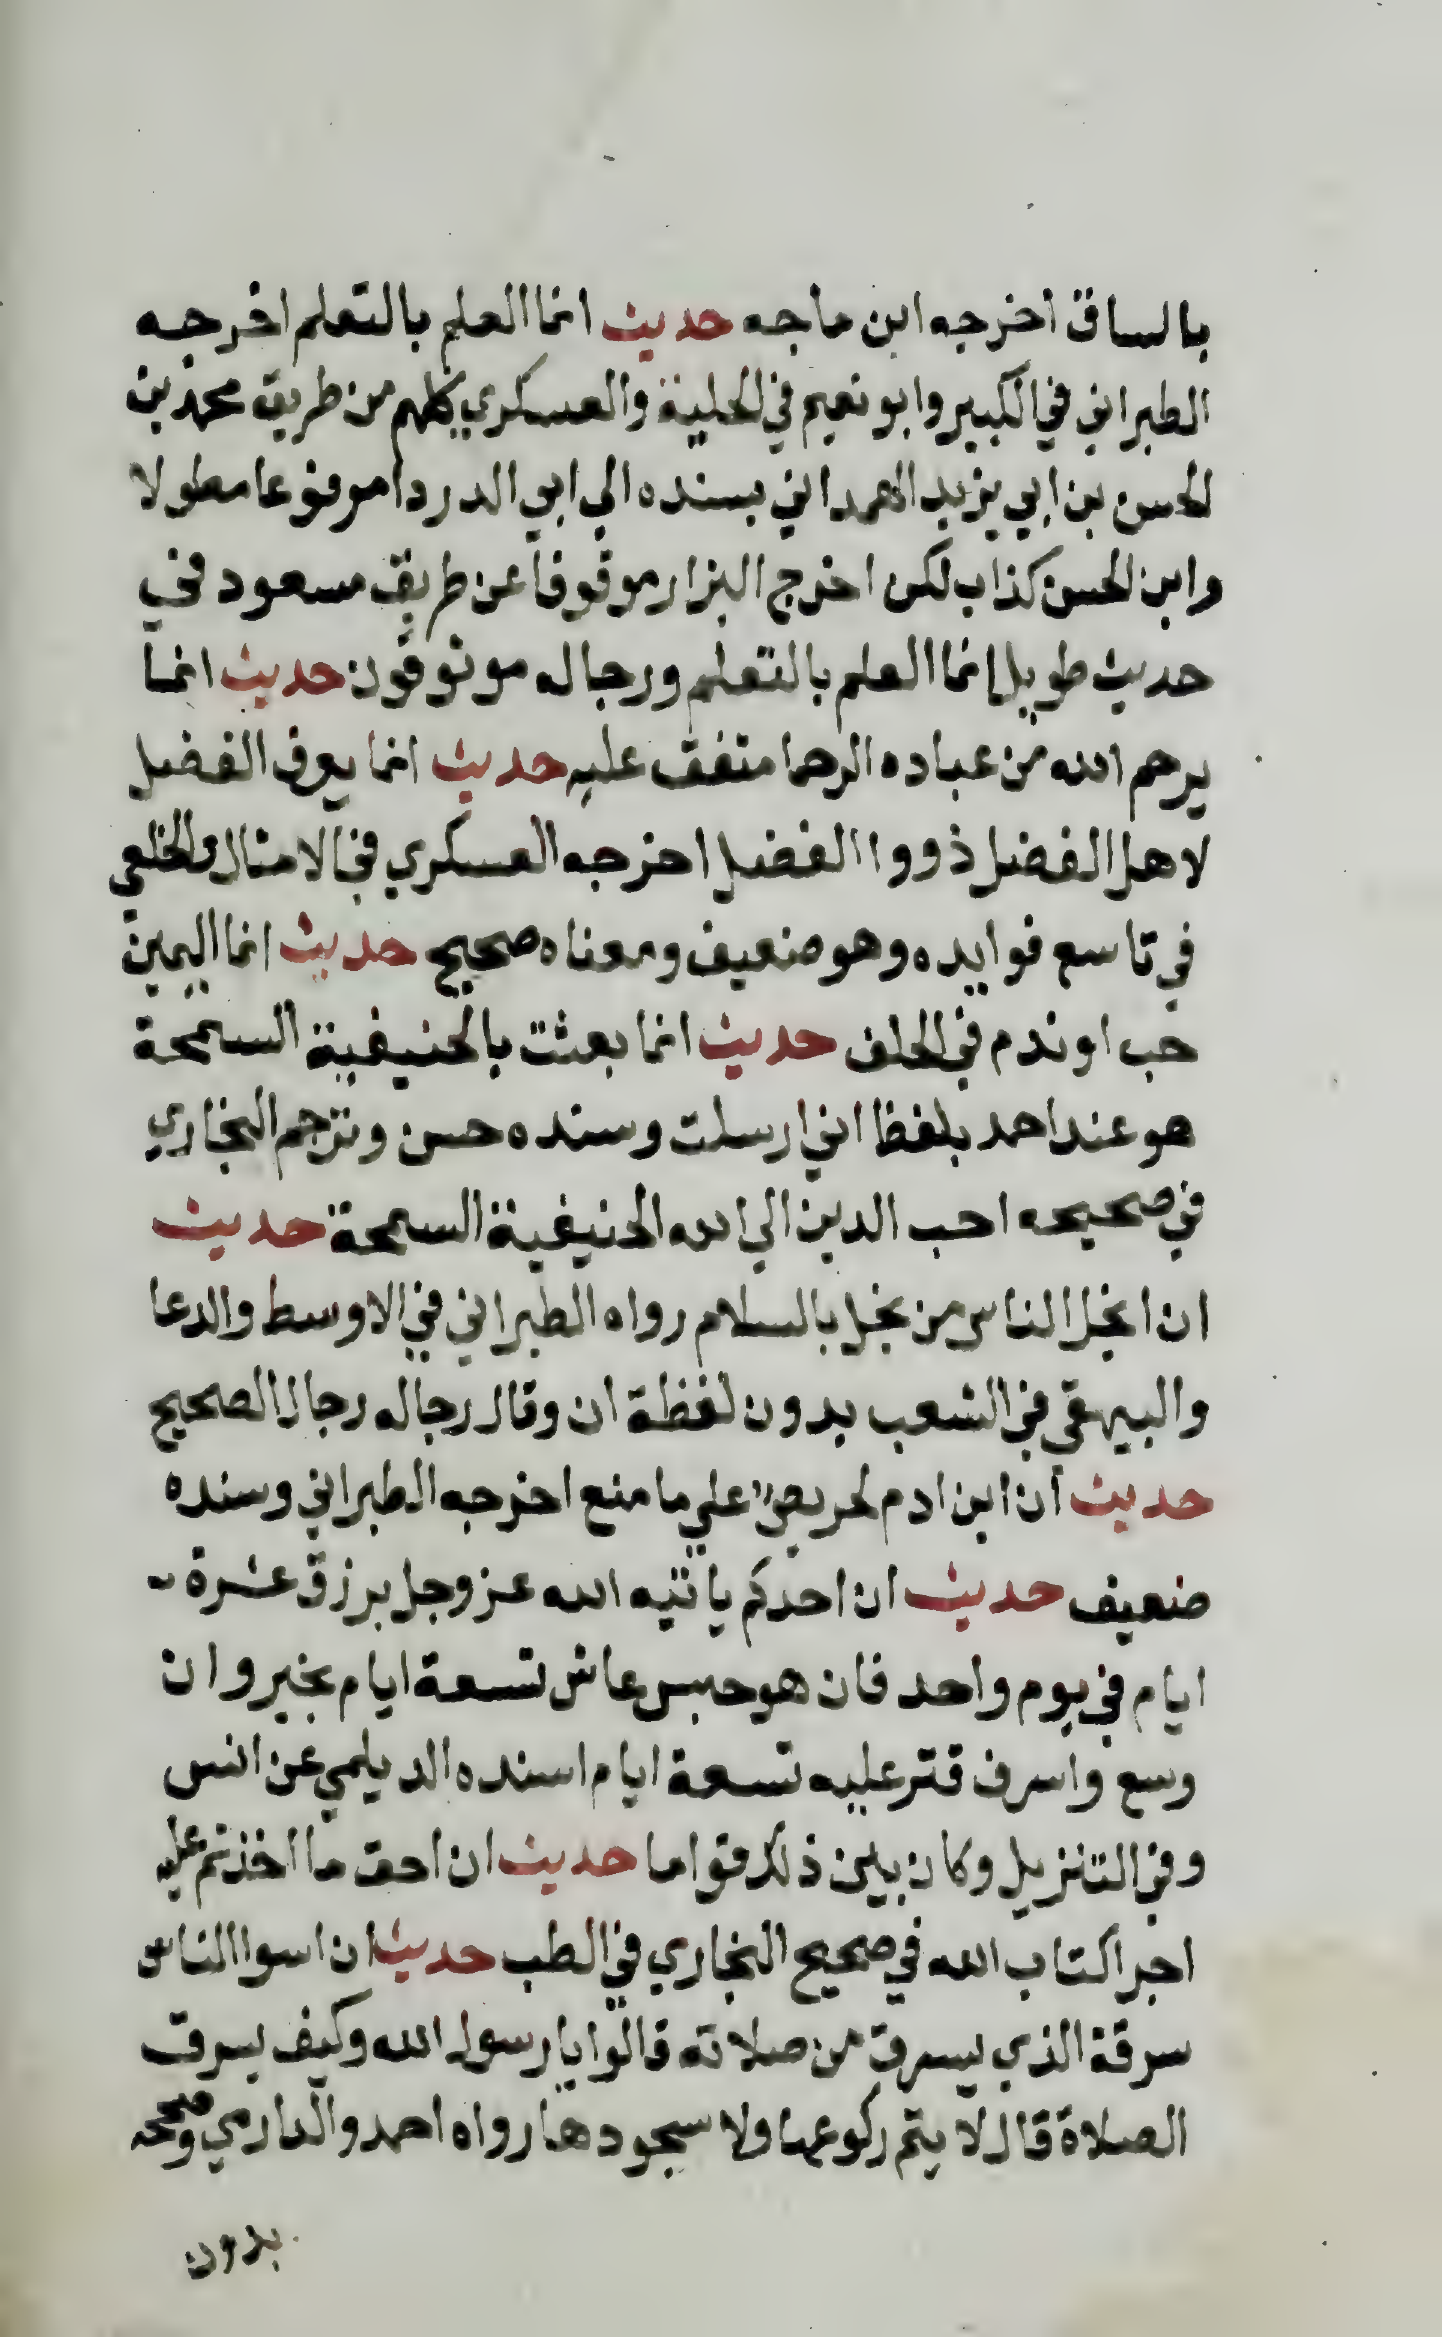 بالساق اخرجه ابن ماجه حديث انما العلم بالتعلم اخرجه
الطبراني في الكبير وابو نعيم في الحلية والعسكري كلهم من طريق محمد بن
الحسن بن ابي يزيد الهمداني بسنده الي ابي الدرداء مرفوعا مطولا
وابن الحسن كذاب لكن اخرج البزار موقوفا عن طريق مسعود في
حديث طويل انما العلم بالتعلم ورجاله موثوقون حديث انما
يرحم الله من عباده الرحما متفق عليه حديث انما يعرف الفضل
لاهل الفضل ذووا الفضل اخرجه العسكري في الامثال والخلعي
في تاسع فوايده وهو ضعيف ومعناه صحيح حديث انما اليمين
حب او ندم في الحلف حديث انما بعثت بالحنيفية السمحة
هو عند احمد بلفظ اني ارسلت وسنده حسن وترجم البخاري
في صحيحه احب الدين الي الله الحنيفية السمحة حديث
ان ابخل الناس من بخل بالسلام رواه الطبراني في الاوسط والدعا
والبيهقي في الشعب بدون لفظة ان وقال رجاله رجال الصحيح
حديث ان ابن ادم لحريص علي ما منع اخرجه الطبراني وسنده
ضعيف حديث ان احدكم ياتيه الله عز وجل برزق عشرة
ايام في يوم واحد فان هو حبس عاش تسعة ايام بخير وان
وسع واسرف قتر عليه تسعة ايام اسنده الديلمي عن انس
وفي التنزيل وكان بين ذلك قواما حديث ان احق ما اخذتم عليه
اجرا كتاب الله في صحيح البخاري في الطب حديث ان اسوا الناس
سرقة الذي يسرق من صلاته قالوا يا رسول الله وكيف يسرق
الصلاة قال لا يتم ركوعها ولا سجودها رواه احمد والدارمي وصححه
بدون